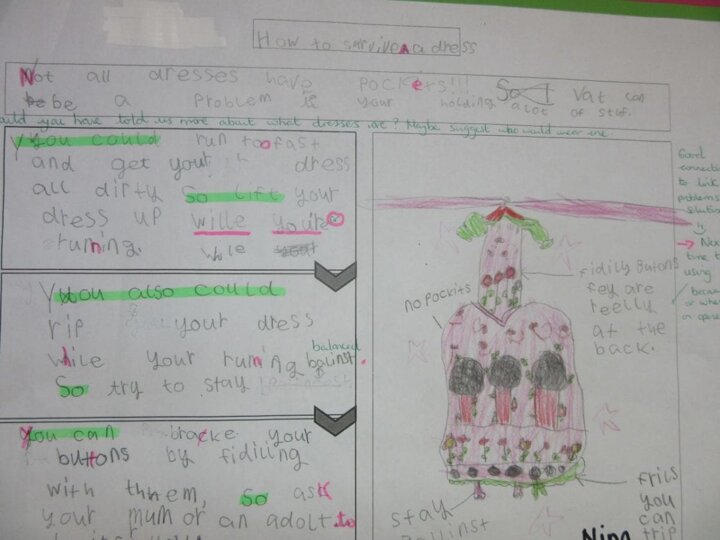 How to survive a dress
Not all dresses have pockets!!! So Vat can
be a problem is your holding a lot of stuf.
ould you have told us more about what dresses are? Maybe suggest who would wear one.
You could run too fast
and get your dress
all dirty So lift your
dress up wille you're
running. while
You also could
rip your dress
while your runing balinst.
balanced
So try to stay
You can bracke your
buttons by fidiling
with them, so ask
your mum or an adolt to
no pockits
fidily butons
fey are
reelly
at the
back.
stay
ballinst
frils
you
can
trip
Nina
Good
connection
to link
problems
solution
Nex
time t
using
becau
or whe